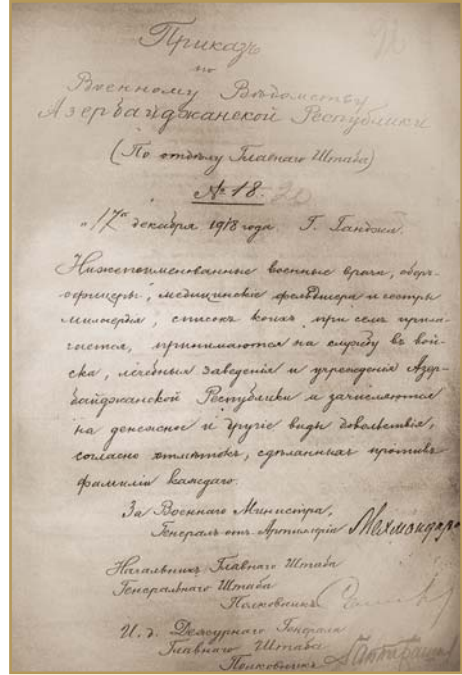 Приказъ
по
Военному Вѣдомству
Азербайджанской Республики
(По отдѣлу Главнаго Штаба)
№ 18. 20
"17" декабря 1918 года. Г. Ганджа.
Нижепоименованные военные врачи, оберъ-
офицеры, медицинскіе фельдшера и сестры
милосердія, списокъ коихъ при семъ прила-
гается, принимаются на службу въ вой-
ска, лечебныя заведенія и учрежденія Азер-
байджанской Республики и зачисляются
на денежное и другіе виды довольствія,
согласно отмѣтокъ, сдѣланныхъ противъ
фамиліи каждаго.
За Военнаго Министра,
Генералъ-отъ-Артиллеріи Мехмандаро
Начальникъ Главнаго Штаба
Генеральнаго Штаба
Полковникъ
И. д. Дежурнаго Генерала
Главнаго Штаба
Полковникъ